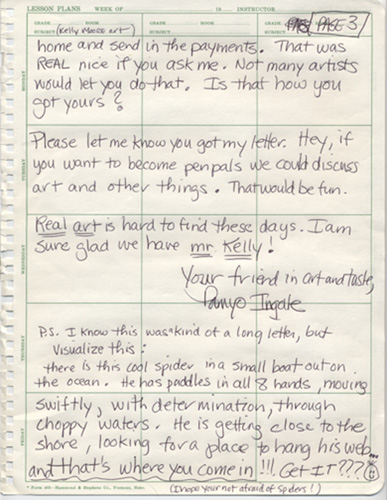 LESSON PLANS WEEK OF 19 INSTRUCTOR
GRADE ROOM GRADE ROOM GRADE ROOM PAGE 3
SUBJECT (Kelly Moore art) SUBJECT SUBJECT
home and send in the payments. That was
REAL nice if you ask me. Not many artists
would let you do that. Is that how you
got yours?
Please let me know you got my letter. Hey, if
you want to become penpals we could discuss
art and other things. That would be fun.
Real art is hard to find these days. I am
sure glad we have mr. Kelly!
Your friend in art and taste,
Ingate
P.S. I know this was kind of a long letter, but
visualize this:
there is this cool spider in a small boat out on
the ocean. He has paddles in all 8 hands, moving
swiftly, with determination, through
choppy waters. He is getting close to the
shore, looking for a place to hang his web...
and that's where you come in!!! Get IT???
(I hope your not afraid of spiders!)
MONDAY
TUESDAY
WEDNESDAY
THURSDAY
FRIDAY